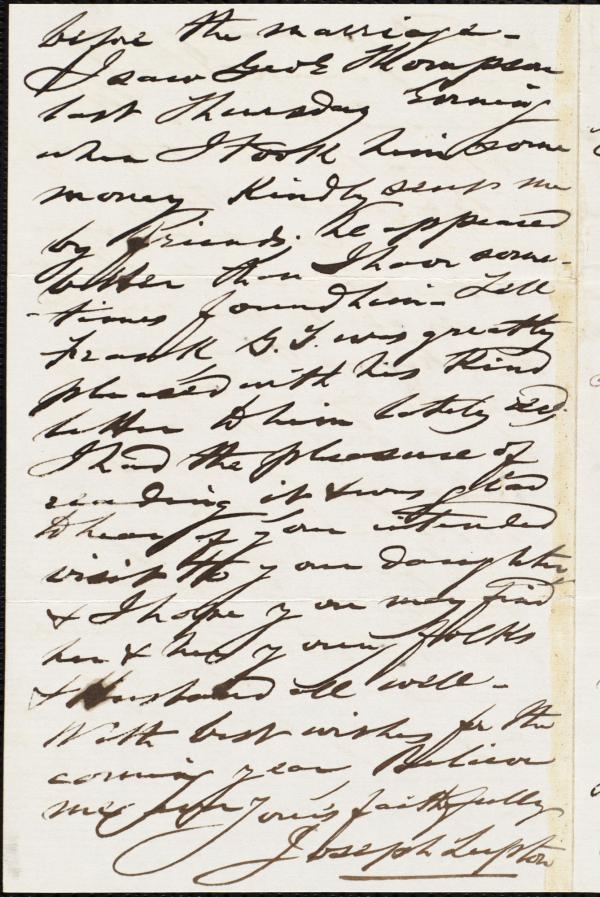 before the marriage -
I saw Geo Thompson
last Thursday Evening
when I took him some
money kindly sent me
by Friends. he appeared
better than I have some-
times found him - Tell
Frank G. T. was greatly
pleased with his kind
letter to him lately recd.
I had the pleasure of
reading it & was glad
to hear of your intended
visit to your daughter
& I hope you may find
her & her young folks
& Husband all well -
With best wishes for the
coming year Believe
me yours faithfully
Joseph Lupton